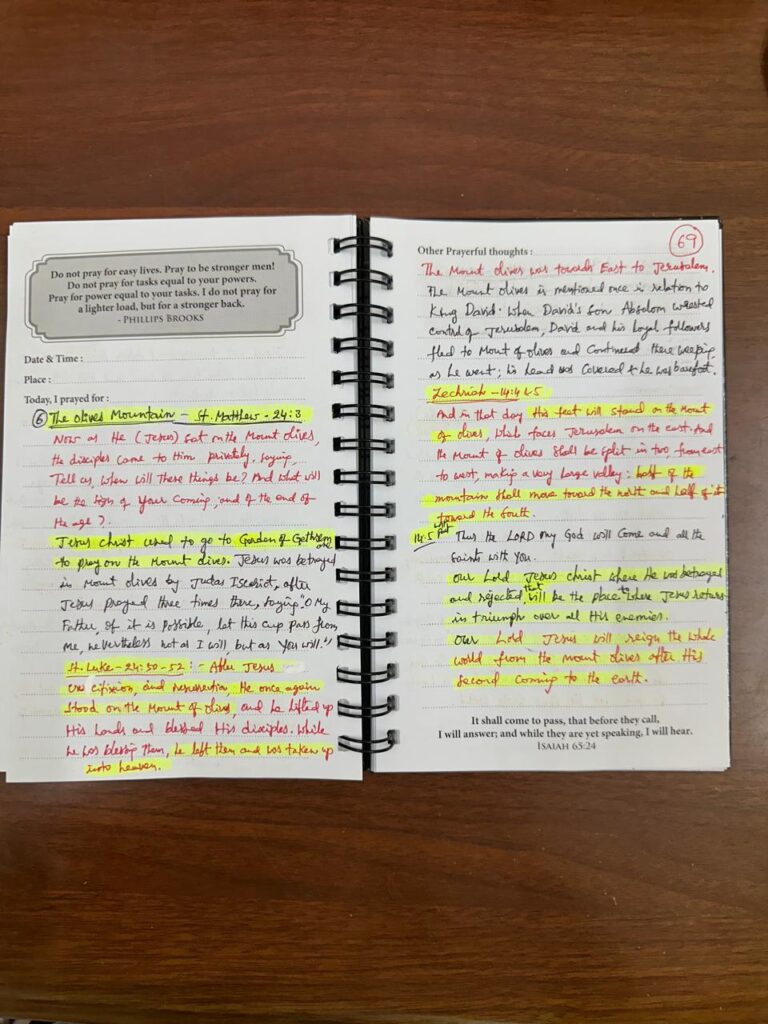 Do not pray for easy lives. Pray to be stronger men!
Do not pray for tasks equal to your powers.
Pray for power equal to your tasks. I do not pray for
a lighter load, but for a stronger back.
- PHILLIPS BROOKS
Date & Time :
Place :
Today, I prayed for :
6 The Olives Mountain - St. Matthew - 24:3
Now as He (Jesus) Sat on the Mount Olives,
the disciples came to Him privately, saying,
Tell us, when will these things be? And what will
be the sign of Your Coming, and of the end of
the age?
Jesus Christ used to go to Garden of Gethsemane
to pray on the Mount Olives. Jesus was betrayed
in Mount Olives by Judas Iscariot, after
Jesus prayed three times there, saying "O My
Father, if it is possible, let this Cup pass from
Me, nevertheless not as I will, but as You will."
St. Luke - 24:50-52 : - After Jesus
crucifixion, and resurrection, He once again
stood on the Mount of Olives, and he lifted up
His hands and blessed His disciples. While
he was blessing them, he left them and was taken up
into heaven.
69
Other Prayerful thoughts :
The Mount Olives was towards East to Jerusalem.
The Mount Olives is mentioned once in relation to
King David. When David's Son Absalom wrested
control of Jerusalem, David and his loyal followers
fled to Mount of Olives and Continued there weeping
as he went; his head was Covered & he was barefoot.
Zechriah - 14:4 & 5
And in that day His feet will stand on the Mount
of Olives, which faces Jerusalem on the east. And
the Mount of Olives shall be split in two, from east
to west, making a very large valley: half of the
mountain shall move toward the north and half of it
toward the South.
14:5 last Thus the LORD my God will Come and all the
Saints with You.
Our Lord Jesus Christ where He was betrayed
and rejected, that will be the place to where Jesus return
in triumph over all His enemies.
Our Lord Jesus will reign the whole
world from the Mount Olives after His
Second Coming to the earth.
It shall come to pass, that before they call,
I will answer; and while they are yet speaking, I will hear.
ISAIAH 65:24